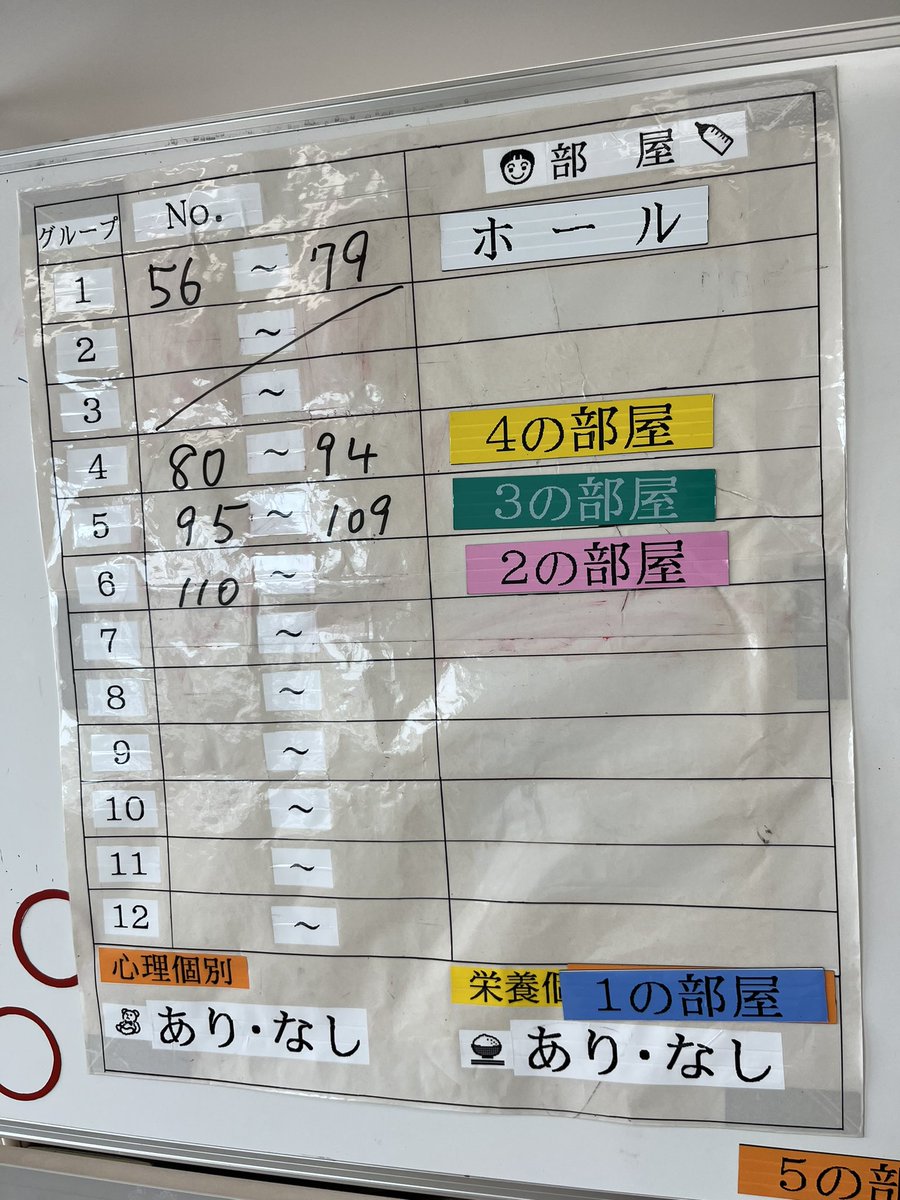 部屋
グループ No. ホール
1 56 ~ 79
2 ~
3 ~
4 80 ~ 94 4の部屋
5 95 ~ 109 3の部屋
6 110 ~ 2の部屋
7 ~
8 ~
9 ~
10 ~
11 ~
12 ~
心理個別 栄養個 1の部屋
あり・なし あり・なし
5の部